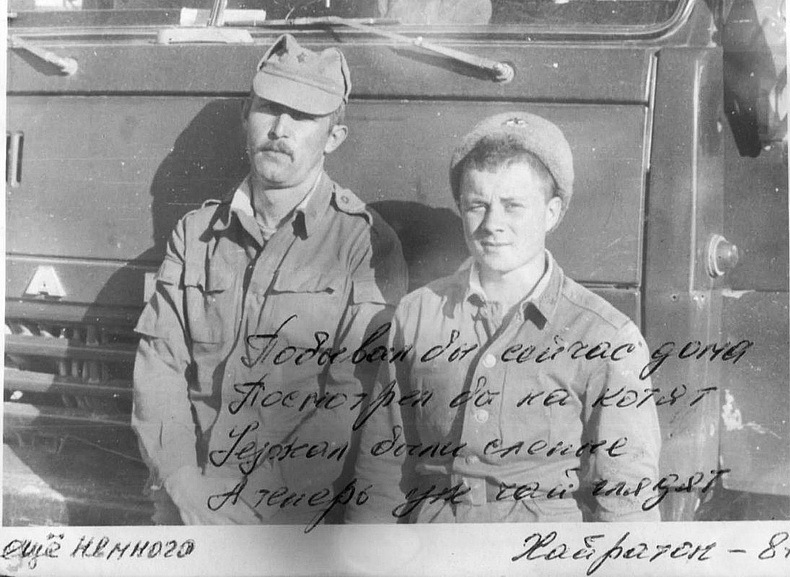 А
Побывал бы сейчас дома
Посмотрел бы на котят
Уезжал были слепые
А теперь уж чай глядят
ещё немного
Хайратон - 8